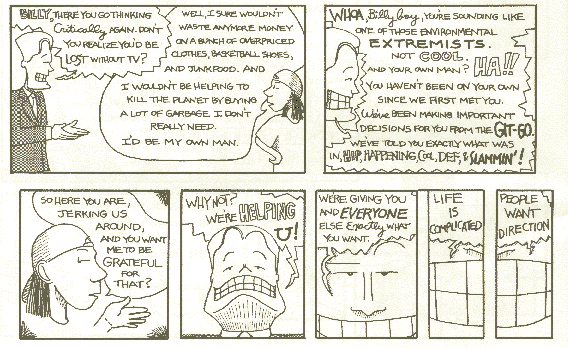 BILLY, THERE YOU GO THINKING
Critically AGAIN. DON'T
YOU REALIZE YOU'D BE
LOST WITHOUT TV?
WELL, I SURE WOULDN'T
WASTE ANYMORE MONEY
ON A BUNCH OF OVERPRICED
CLOTHES, BASKETBALL SHOES,
AND JUNKFOOD. AND
I WOULDN'T BE HELPING TO
KILL THE PLANET BY BUYING
A LOT OF GARBAGE I DON'T
REALLY NEED.
I'D BE MY OWN MAN.
WHOA, Billy boy, YOU'RE SOUNDING LIKE
ONE OF THOSE ENVIRONMENTAL
EXTREMISTS.
NOT COOL.
AND YOUR OWN MAN? HA!!
YOU HAVEN'T BEEN ON YOUR OWN
SINCE WE FIRST MET YOU.
We've BEEN MAKING IMPORTANT
DECISIONS FOR YOU FROM THE GIT-GO.
WE'VE TOLD YOU EXACTLY WHAT WAS
IN, HIP, HAPPENING, COOL, DEF, & SLAMMIN'!
SO HERE YOU ARE,
JERKING US
AROUND,
AND YOU WANT
ME TO BE
GRATEFUL
FOR
THAT?
WHY NOT?
WE'RE HELPING
U!
WE'RE GIVING YOU
AND EVERYONE
ELSE Exactly WHAT
YOU WANT.
LIFE
IS
COMPLICATED
PEOPLE
WANT
DIRECTION